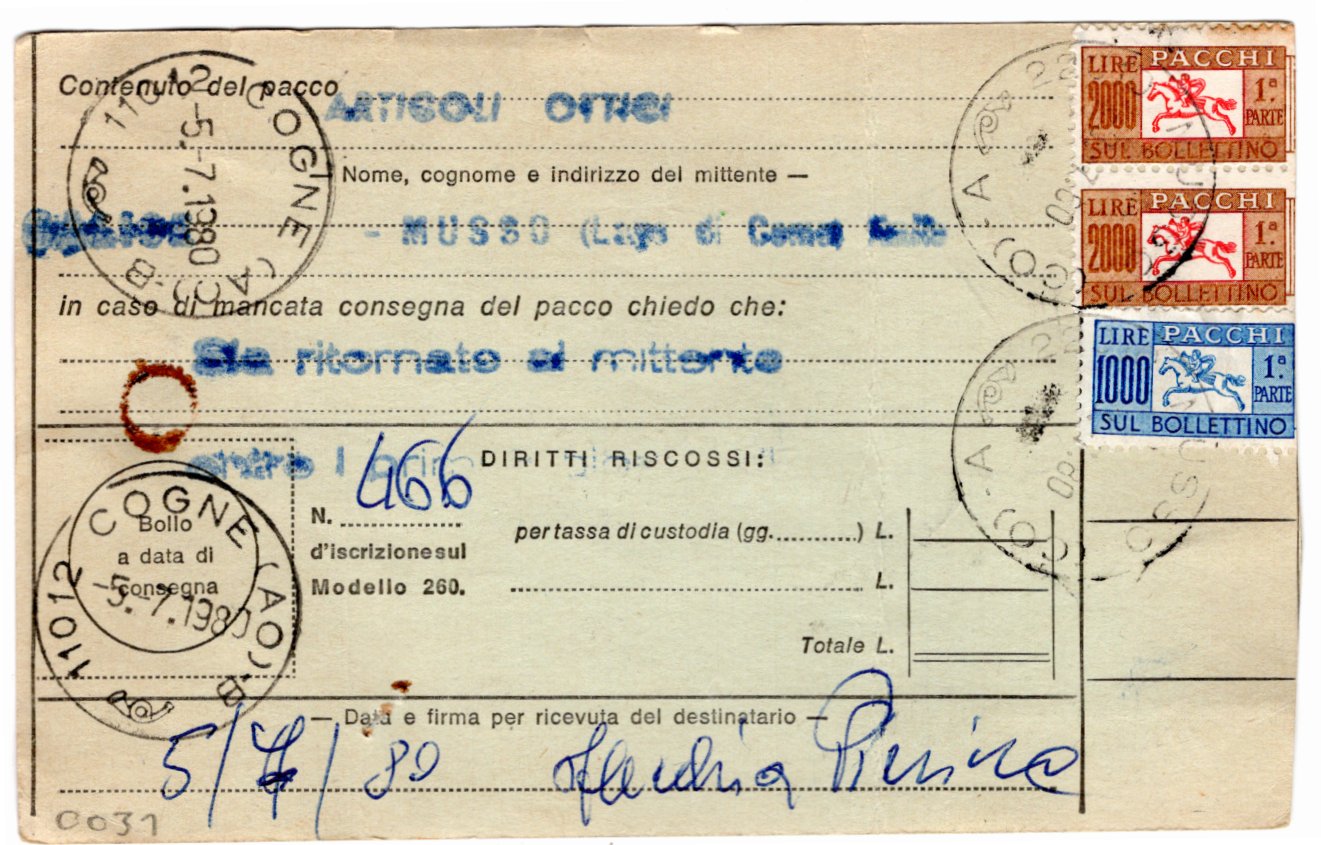 Contenuto del pacco
ARTICOLI OTTICI
Nome, cognome e indirizzo del mittente —
- MUSSO (Lago di Como)
in caso di mancata consegna del pacco chiedo che:
Sia ritornato al mittente
entro i
DIRITTI RISCOSSI:
N. 466
d'iscrizione sul
Modello 260.
per tassa di custodia (gg. ) L.
L.
Totale L.
Bollo
a data di
consegna
— Data e firma per ricevuta del destinatario —
5/7/80
0031
11012 COGNE (AO) - B
-5.-7.1980
11012 COGNE (AO) - B
-5.-7.1980
LIRE PACCHI
2000 1ª PARTE
SUL BOLLETTINO
LIRE PACCHI
2000 1ª PARTE
SUL BOLLETTINO
LIRE PACCHI
1000 1ª PARTE
SUL BOLLETTINO
22 MUSSO (CO) - A
22 MUSSO (CO) - A